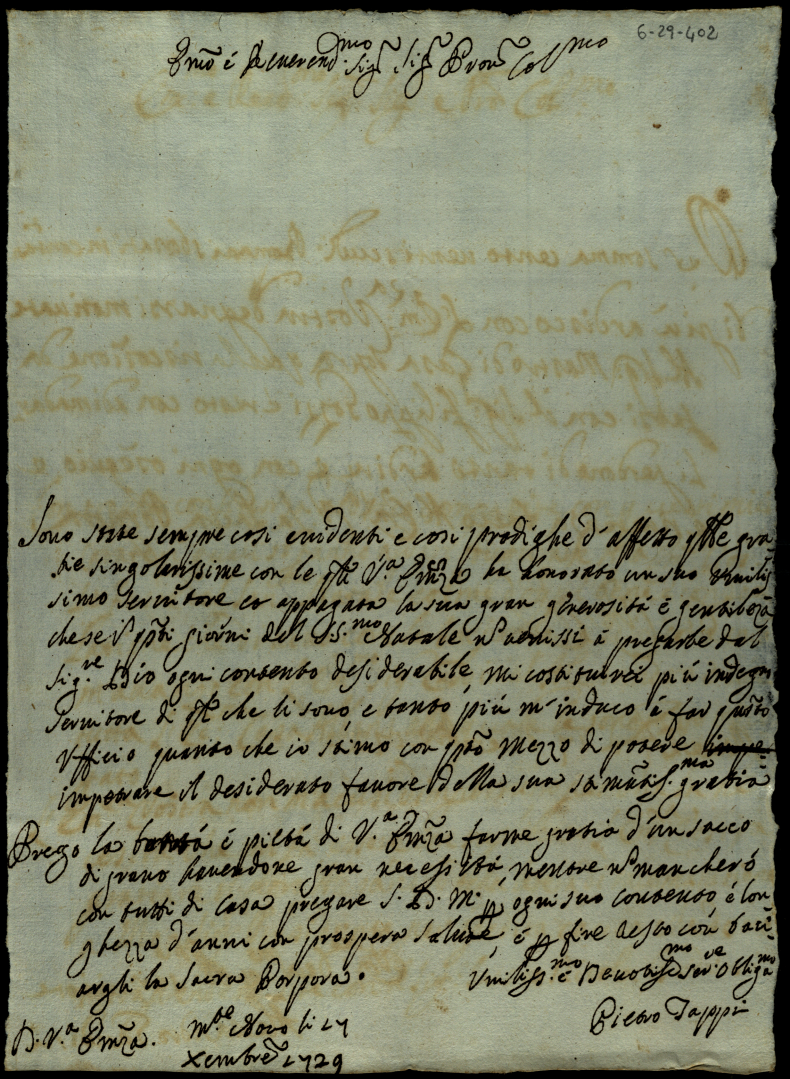 6-29-402
Emõ é Reverend.mo Sig.r Sig.r Pron Col.mo
Sono state sempre cosi euidenti e cosi prodighe d'affetto qlle gra=
tie singolarissime con le qli V.a Emza ha honorato un suo vmilis
simo seruitore et appagata la sua gran generositá é gentilezza
che se i' pnti giorni del SS.mo Natale nõ uenissi á pregarle dal
Sig.re Dio ogni contento desiderabile, mi costituirei piú indegno
seruitore di ql che li sono, e tanto piú m'induco á far questo
vfficio quanto che io stimo con qsto mezzo di potere impe=
impetrare il desiderato fauore della sua stimatis.ma gratia
Prego la bontá é pietá di V.a Emza farme gratia d'un sacco
di grano hauendone gran necessitá, mentre nõ mancheró
con tutti di casa pregare S. D. M. p ogni suo contento é lon=
ghezza d'anni con prospera salute, é p fine resto con baci=
argli la Sacra Porpora.
Vmiliss.mo é Deuotiss.mo ser.re obliga.mo
Pietro Tappi
D. V.a Emza.
M.te Nouo li 17
Xembre 1729